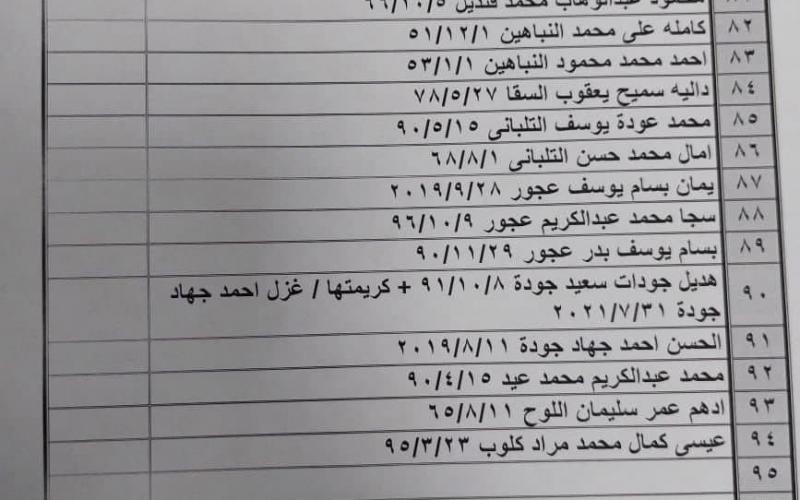 ٨١ محمود عبدالوهاب محمد قنديل ٦٦/١٠/٥
٨٢ كامله على محمد النباهين ٥١/١٢/١
٨٣ احمد محمد محمود النباهين ٥٣/١/١
٨٤ داليه سميح يعقوب السقا ٧٨/٥/٢٧
٨٥ محمد عودة يوسف التلبانى ٩٠/٥/١٥
٨٦ امال محمد حسن التلبانى ٦٨/٨/١
٨٧ يمان بسام يوسف عجور ٢٠١٩/٩/٢٨
٨٨ سجا محمد عبدالكريم عجور ٩٦/١٠/٩
٨٩ بسام يوسف بدر عجور ٩٠/١١/٢٩
٩٠ هديل جودات سعيد جودة ٩١/١٠/٨ + كريمتها / غزل احمد جهاد
جودة ٢٠٢١/٧/٣١
٩١ الحسن احمد جهاد جودة ٢٠١٩/٨/١١
٩٢ محمد عبدالكريم محمد عيد ٩٠/٤/١٥
٩٣ ادهم عمر سليمان اللوح ٦٥/٨/١١
٩٤ عيسى كمال محمد مراد كلوب ٩٥/٣/٢٣
٩٥